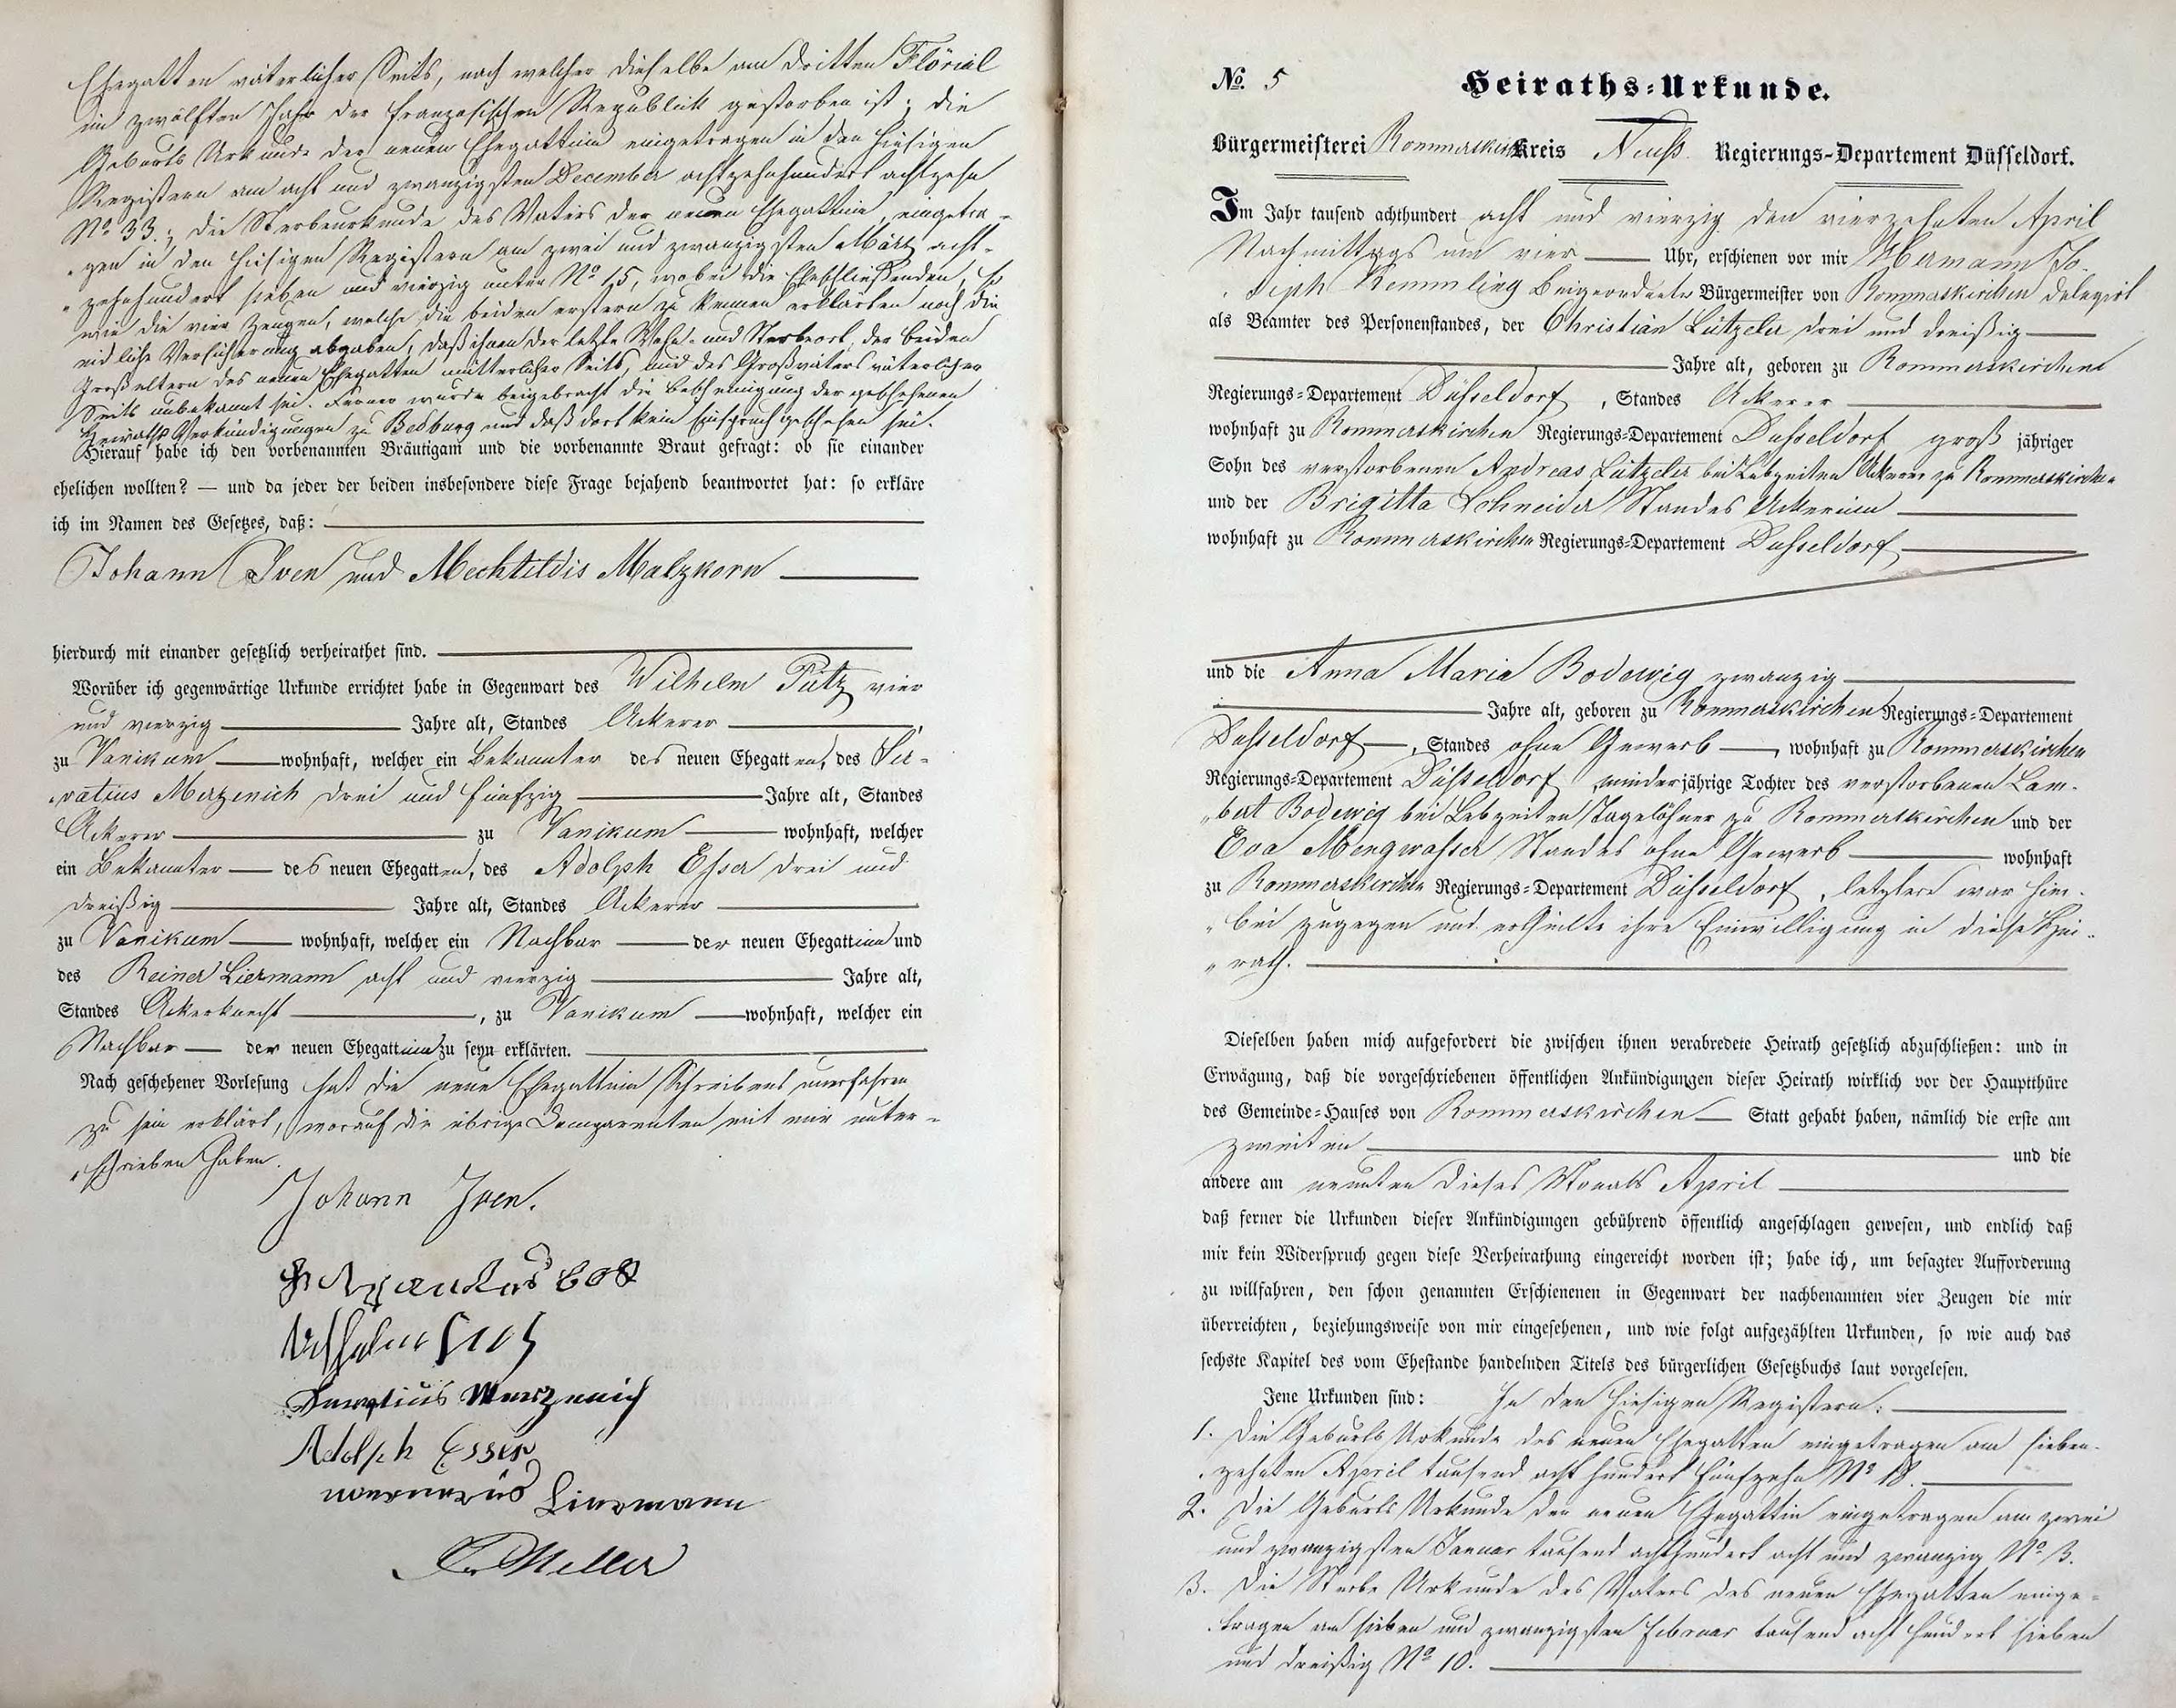 Ehegatten väterlicher Seits, nach welcher dieselbe am dritten Florial
im zwölften Jahr der französischen Republick gestorben ist; die
Geburts Urkunde der neuen Ehegattinn eingetragen in den hiesigen
Registern am acht und zwanzigsten December achtzehnhundert achtzehn
No 33.; die Sterbeurkunde des Vaters der neuen Ehegattinn, eingetra-
gen in den hiesigen Registern am zwei und zwanzigsten März acht-
zehnhundert sieben und vierzig unter No 15, wobei die Eheschließenden, so
wie die vier Zeugen, welche die beiden erstern zu kennen erklärten noch die
eidliche Versicherung abgaben, daß ihnen der letzte Wohn- und Sterbeort, der beiden
Großeltern des neuen Ehegatten mütterlicher Seits, und des Großvaters väterlicher
Seits unbekannt sei. Ferner wurde beigebracht die Bescheinigung der geschehenen
Heiraths Verkündigungen zu Bedburg und daß dort kein Einspruch geschehen sei.
Hierauf habe ich den vorbenannten Bräutigam und die vorbenannte Braut gefragt: ob sie einander
ehelichen wollten? — und da jeder der beiden insbesondere diese Frage bejahend beantwortet hat: so erkläre
ich im Namen des Gesetzes, daß:
Johann Iven und Mechtildis Malzkorn
hierdurch mit einander gesetzlich verheirathet sind.
Worüber ich gegenwärtige Urkunde errichtet habe in Gegenwart des Wilhelm Pütz vier
und vierzig Jahre alt, Standes Ackerer,
zu Vanikum wohnhaft, welcher ein Bekannter des neuen Ehegatten, des Ser-
vatius Merzenich drei und fünfzig Jahre alt, Standes
Ackerer zu Vanikum wohnhaft, welcher
ein Bekannter des neuen Ehegatten, des Adolph Esser drei und
dreißig Jahre alt, Standes Ackerer
zu Vanikum wohnhaft, welcher ein Nachbar der neuen Ehegattinn und
des Reiner Liermann acht und vierzig Jahre alt,
Standes Ackerknecht, zu Vanikum wohnhaft, welcher ein
Nachbar der neuen Ehegattinn zu seyn erklärten.
Nach geschehener Vorlesung hat die neue Ehegattinn Schreibens unerfahren
zu sein erklärt, worauf die übrige Comparenten mit mir unter-
schrieben haben.
Johann Iven.
Servatius Merzenich
Adolph Esser
Liermann
No. 5 Heiraths-Urkunde.
Bürgermeisterei Rommerskirchen Kreis Neuß Regierungs-Departement Düsseldorf.
Im Jahr tausend achthundert acht und vierzig den vierzehnten April
Nachmittags um vier Uhr, erschienen vor mir Hermann Jo-
seph Kemmling Beigeordneter Bürgermeister von Rommerskirchen delegirt
als Beamter des Personenstandes, der Christian Lützeler drei und dreißig
Jahre alt, geboren zu Rommerskirchen
Regierungs-Departement Düsseldorf, Standes Ackerer
wohnhaft zu Rommerskirchen Regierungs-Departement Düsseldorf groß jähriger
Sohn des verstorbenen Andreas Lützeler bei Lebzeiten Ackerer zu Rommerskirchen
und der Brigitta Schneider Standes Ackerinn
wohnhaft zu Rommerskirchen Regierungs-Departement Düsseldorf
und die Anna Maria Bodewig zwanzig
Jahre alt, geboren zu Rommerskirchen Regierungs-Departement
Düsseldorf, Standes ohne Gewerb, wohnhaft zu Rommerskirchen
Regierungs-Departement Düsseldorf minderjährige Tochter des verstorbenen Lam-
bert Bodewig bei Lebzeiten Tagelöhner zu Rommerskirchen und der
Eva Mengwasser Standes ohne Gewerb wohnhaft
zu Rommerskirchen Regierungs-Departement Düsseldorf, letztere war hier-
bei zugegen und ertheilte ihre Einwilligung in diese Hei-
rath.
Dieselben haben mich aufgefordert die zwischen ihnen verabredete Heirath gesetzlich abzuschließen: und in
Erwägung, daß die vorgeschriebenen öffentlichen Ankündigungen dieser Heirath wirklich vor der Hauptthüre
des Gemeinde-Hauses von Rommerskirchen Statt gehabt haben, nämlich die erste am
zweiten und die
andere am neunten dieses Monats April
daß ferner die Urkunden dieser Ankündigungen gebührend öffentlich angeschlagen gewesen, und endlich daß
mir kein Widerspruch gegen diese Verheirathung eingereicht worden ist; habe ich, um besagter Aufforderung
zu willfahren, den schon genannten Erschienenen in Gegenwart der nachbenannten vier Zeugen die mir
überreichten, beziehungsweise von mir eingesehenen, und wie folgt aufgezählten Urkunden, so wie auch das
sechste Kapitel des vom Ehestande handelnden Titels des bürgerlichen Gesetzbuchs laut vorgelesen.
Jene Urkunden sind: In den hiesigen Registern:
1. Die Geburts Urkunde des neuen Ehegatten eingetragen am sieben-
zehnten April tausend acht hundert fünfzehn No 18.
2. Die Geburts Urkunde der neuen Ehegattin eingetragen am zwei
und zwanzigsten Januar tausend achthundert acht und zwanzig No 3.
3. Die Sterbe Urkunde des Vaters des neuen Ehegatten einge-
tragen am sieben und zwanzigsten Februar tausend acht hundert sieben
und dreißig No 10.